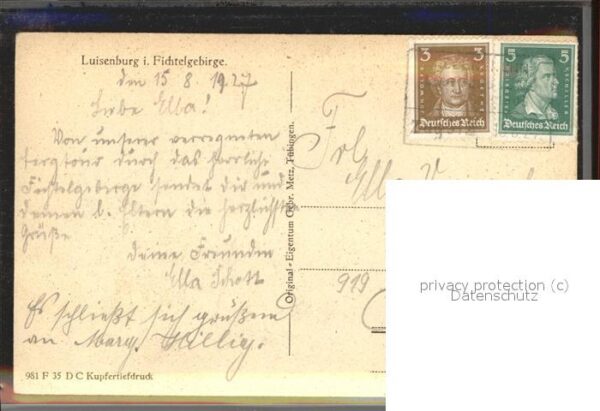 Luisenburg i. Fichtelgebirge.
den 15 8. 1927
Liebe Ella!
Von unserer verregneten
durch das herrliche
Fichtelgebirge sendet dir und
deinen l. Eltern die herzlichsten
Grüße
deine Freundin
Ella Schott
Es schließt sich grüßem
an Marg. Hillig.
981 F 35 D C Kupfertiefdruck
Original-Eigentum Gebr. Metz, Tübingen.
3 3
Deutsches Reich
5 5
FRIEDRICH V. SCHILLER
Deutsches Reich
Frl.
Ella
919
privacy protection (c)
Datenschutz